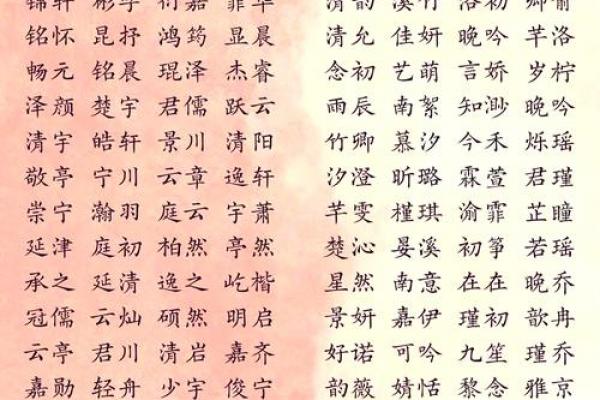 锦轩 彬宇 衍嘉 霏华 清韵 溪竹 洛初 卿俞
铭怀 昆抒 鸿筠 显晨 清允 佳妍 晚吟 芊洛
畅元 铭晨 琨泽 杰睿 念初 艺萌 言娇 岁柠
泽颜 楚宇 君儒 跃云 雨辰 南絮 知渺 晚吟
清宇 皓轩 景川 清阳 竹卿 慕汐 今禾 烁瑶
敬亭 宁川 云章 逸轩 汐澄 昕璐 霖萱 君瑾
崇宁 瀚羽 庭云 宇萧 芊雯 槿琪 渝霏 芷瞳
延津 庭初 柏然 亭然 楚沁 晏溪 初筝 若瑶
承之 延清 逸之 屹楷 星然 南意 在在 晚乔
冠儒 云灿 硕然 明启 景妍 嘉伊 瑾初 歆冉
云亭 君川 清岩 嘉齐 好诺 可吟 九笙 瑾乔
嘉勋 轻舟 少宇 俊宁 韵薇 婧恬 黎念 雅京